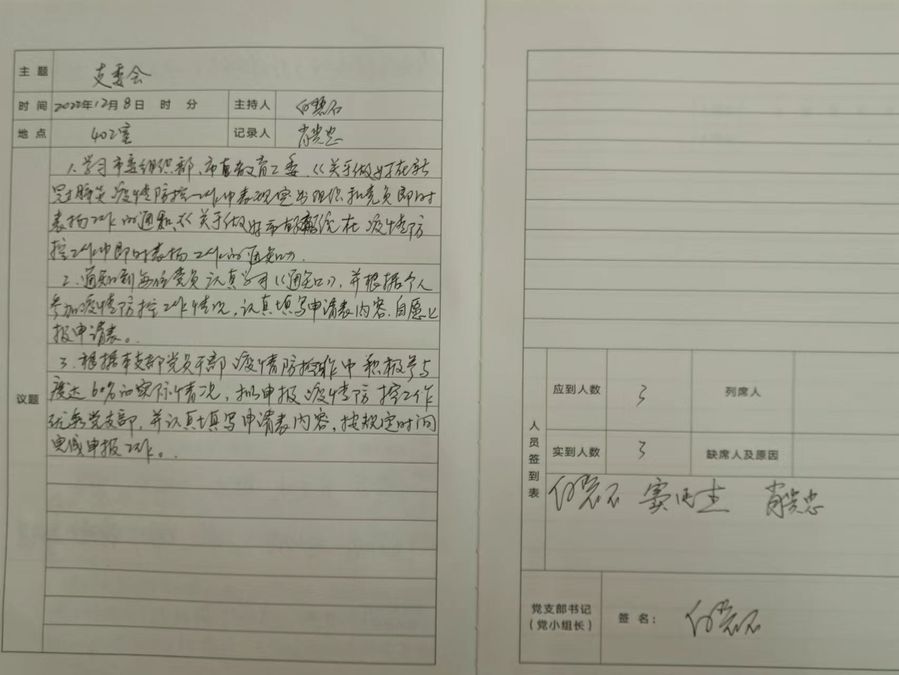 主题 支委会
时间 2022年12月8日 时 分 主持人
地点 402室 记录人 肖贵忠
议题
1.学习市委组织部、市直教育工委《关于做好在新
冠肺炎疫情防控工作中表现突出组织和党员即时
表扬工作的通知》《关于做好 在疫情防
控工作中即时表扬工作的通知》。
2.通知到每位党员认真学习《通知》,并根据个人
参加疫情防控工作情况,认真填写申请表内容,自愿上
报申请表。
3.根据本支部党员干部疫情防控工作中积极参与
度达60%的实际情况,拟申报疫情防控工作
优秀党支部,并认真填写申请表内容,按规定时间
完成申报工作。
人员签到表
应到人数 3 列席人
实到人数 3 缺席人及原因
肖贵忠
党支部书记
(党小组长)
签名: